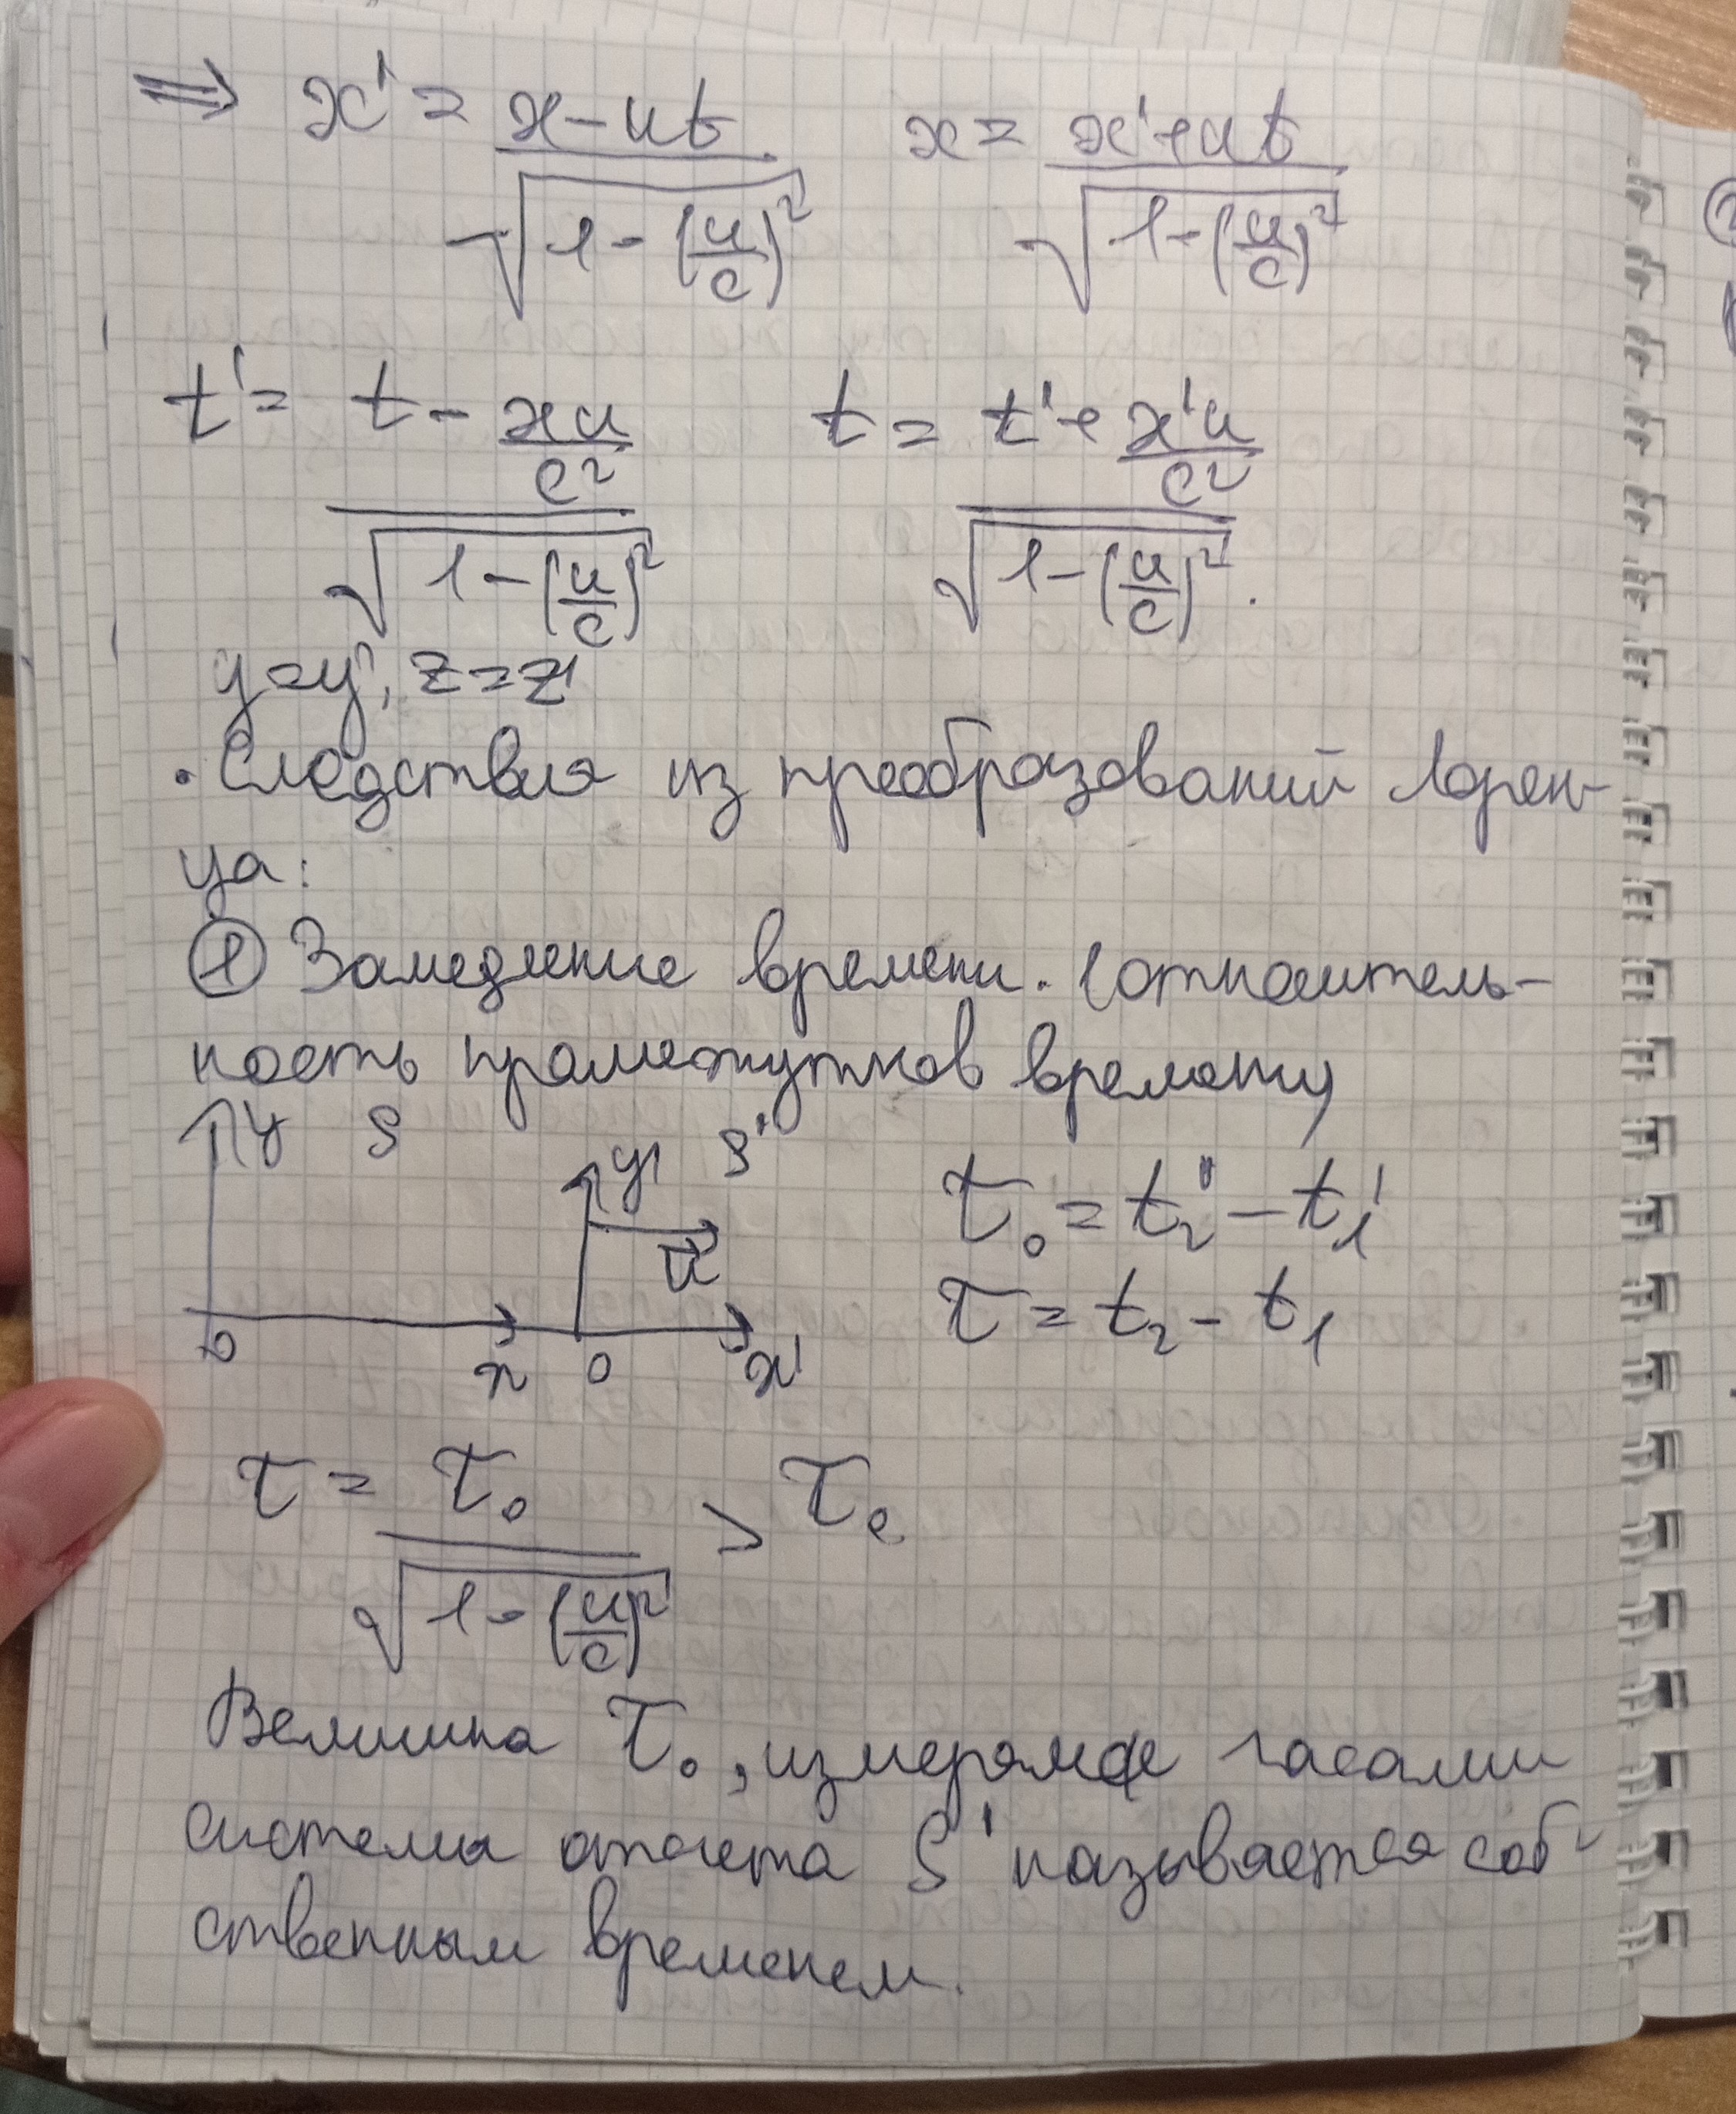 ⇒ x' = (x - ut) / √(1 - (u/c)²)    x = (x' + ut) / √(1 - (u/c)²)
t' = (t - xu/c²) / √(1 - (u/c)²)    t = (t' + x'u/c²) / √(1 - (u/c)²).
y = y', z = z'
• Следствия из преобразований Лорен-
ца:
① Замедление времени. (относитель-
ность промежутков времени)
y S y' S' τ₀ = t₂' - t₁'
u⃗ τ = t₂ - t₁
0 x 0 x'
τ = τ₀ / √(1 - (u/c)²) > τ₀
Величина τ₀, измеряемая часами
системы отсчета S' называется соб-
ственным временем.